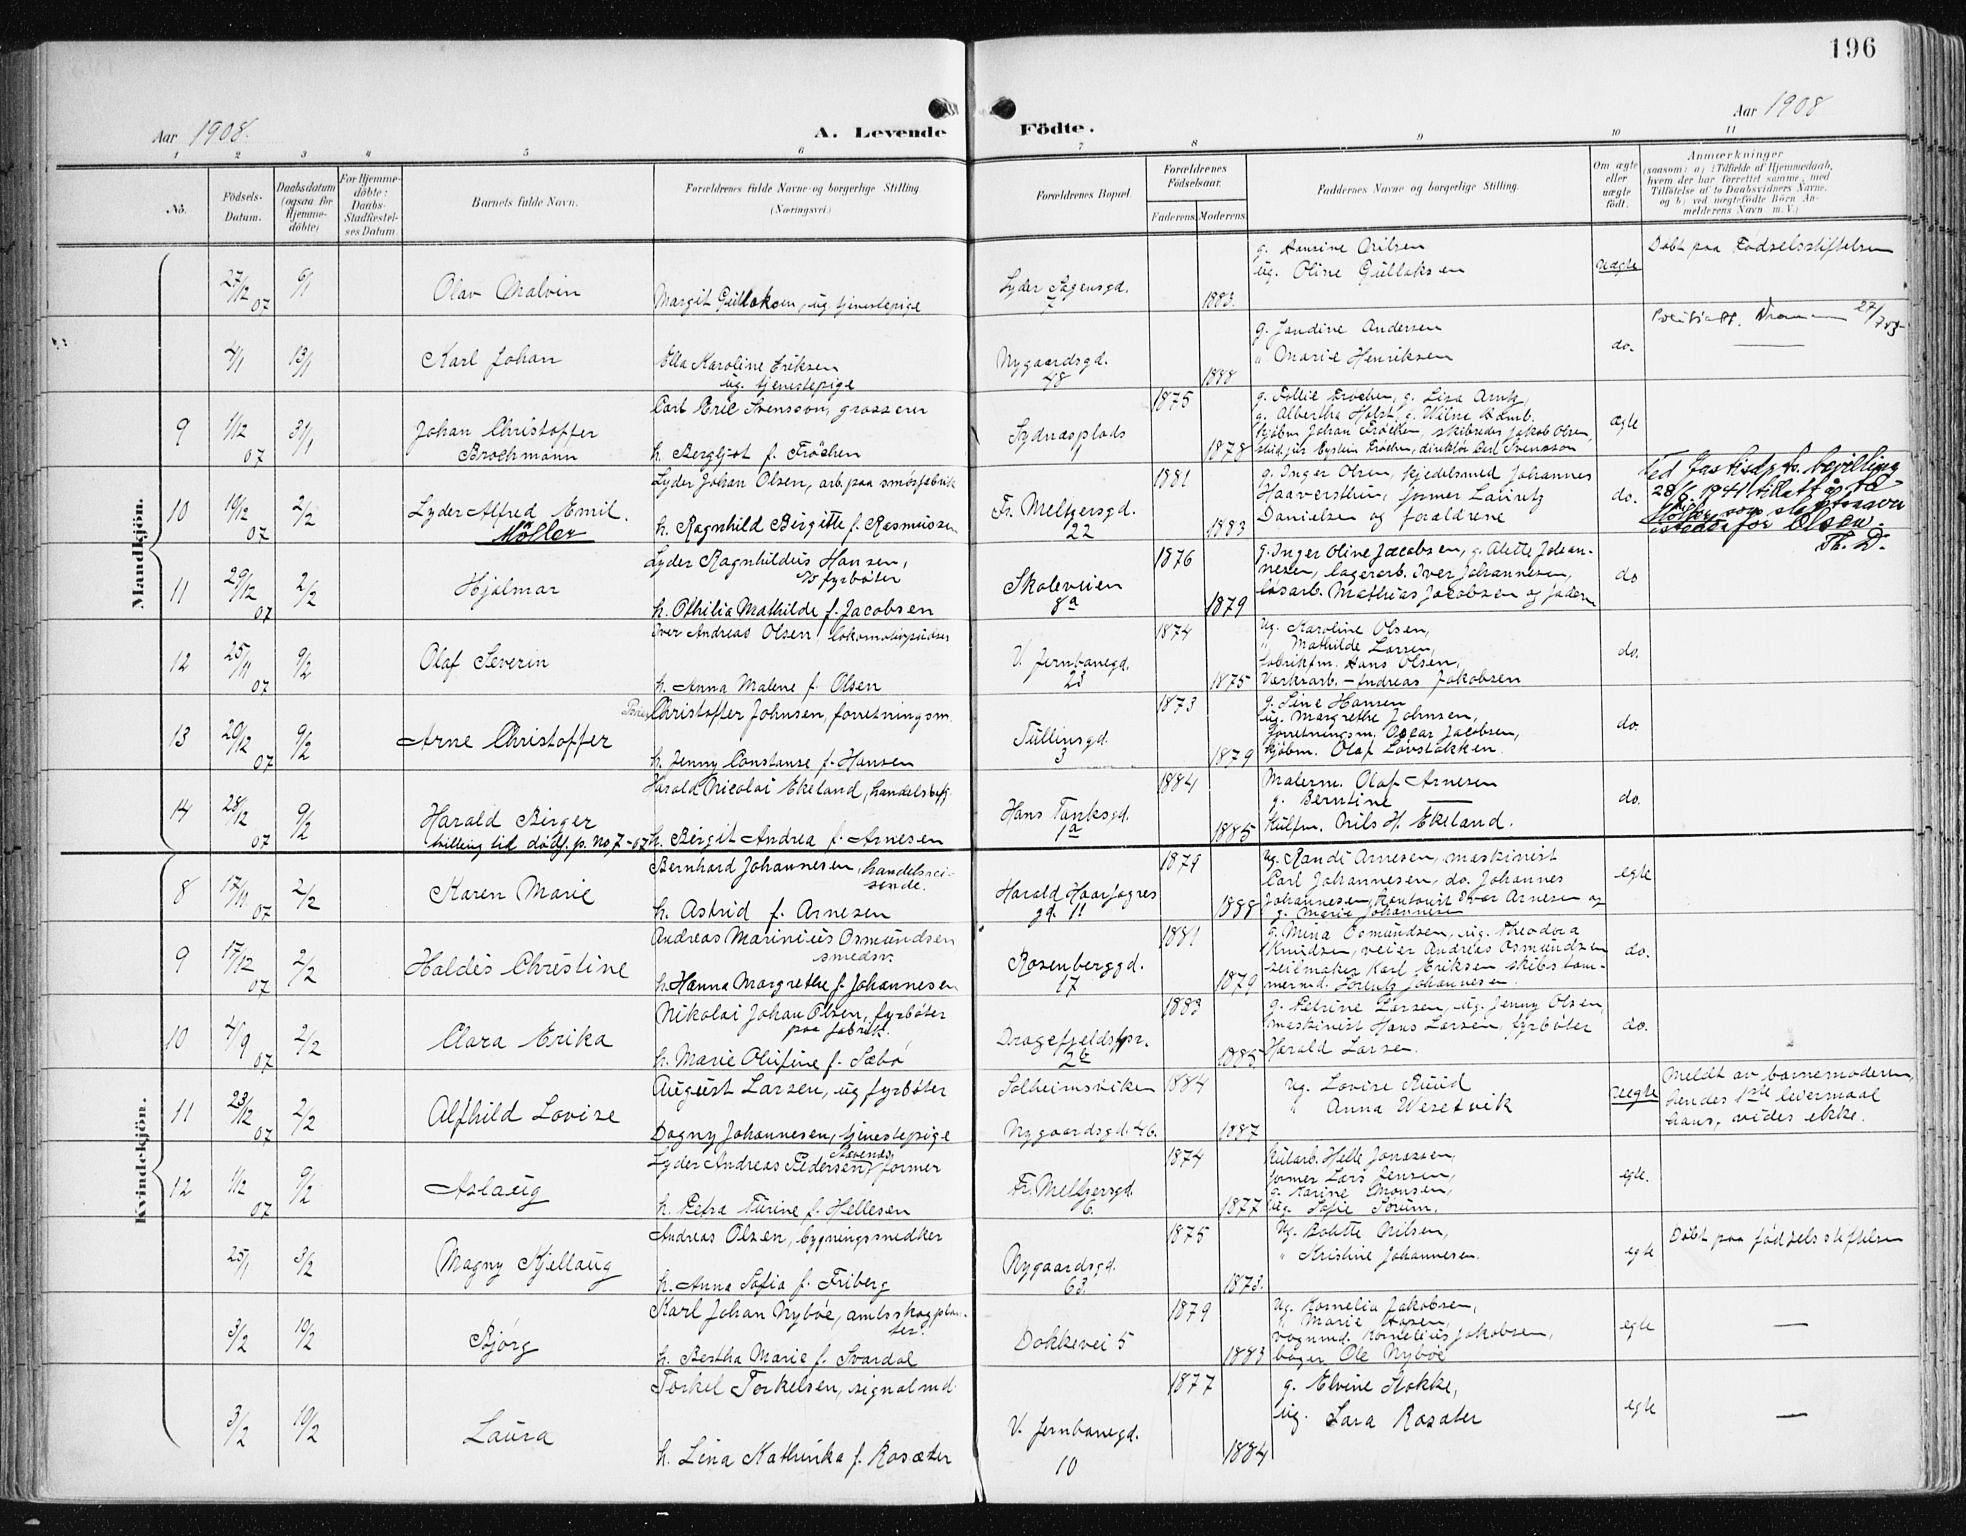 196
Aar 1908.
A. Levende Födte.
Aar 1908
1 2 3 4 5 6 7 8 9 10 11
No.
Födsels-Datum.
Daabsdatum (ogsaa for Hjemmedöbte)
For Hjemmedöbte: Daabs-Stadfæstelses Datum.
Barnets fulde Navn.
Forældrenes fulde Navne og borgerlige Stilling. (Næringsvei.)
Forældrenes Bopæl.
Forældrenes Födselsaar.
Faderens. Moderens.
Faddernes Navne og borgerlige Stilling.
Om ægte eller uægte födt.
Anmærkninger
(saasom: a) i Tilfælde af Hjemmedaab, hvem der har forrettet samme, med Tilföielse af to Daabsvidners Navne, og b) ved uægtefödte Börn Anmelderens Navn m. V.)
Mandkjön.
27/12 07 6/1 Olav Malvin
Margit Gullaksen, ug. tjenestepige
Lyder Sagensgd. 7
1883.
g. Hansine Nilsen
ug. Oline Gullaksen
uægte
Døbt paa Fødselsstiftelsen
4/1 13/1 Karl Johan
Ella Karoline Eriksen
ug. tjenestepige
Nygaardsgd. 48
1888
g. Jandine Andersen
" Marie Henriksen
do.
9 1/12 07 31/1 Johan Christoffer
Brochmann
Carl Eric Svensson, grosserer
h. Bergljot f. Fröchen
Sydnæsplads 1
1875
1878
g. Albertha Holst,
ægte
10 19/12 07 2/2 Lyder Alfred Emil.
Möller
Lyder Johan Olsen, arb. paa smörfabrik
h. Ragnhild Birgitte f. Rasmussen
Fr. Meltzersgd. 22
1881
1883
g. Inger Olsen, kjedelsmed Johannes
Danielsen og forældrene
do.
Olsen.
Th. D.
11 29/12 07 2/2 Hjalmar
Lyder Ragnhildus Hansen,
fyrböter
h. Othilia Mathilde f. Jacobsen
Skoleveien 8a
1876
1879
g. Inger Oline Jacobsen, g. Alette Johan-
nesen, lagerarb. Iver Johannesen,
løsarb. Mathias Jacobsen og faderen
do
12 25/11 07 9/2 Olaf Severin
Iver Andreas Olsen, lokomotivpudser
h. Anna Malene f. Olsen
V. Jernbanegd. 23
1874
1875
ug. Karoline Olsen,
" Mathilde Larsen,
fabrikfm. Hans Olsen,
værksarb. Andreas Jakobsen
do.
13 20/12 07 9/2 Arne Christoffer
Christoffer Johnsen, forretningsm.
h. Jenny Constanse f. Hansen
Tullinsgd. 3
1873
1879
g. Sine Hansen
ug. Margrethe Johnsen,
forretningsm. Oscar Jacobsen,
kjøbm. Olaf Løvstakken.
do.
14 28/12 07 9/2 Harald Birger
tillæg til dødsf. p. No 7-07
Harald Nicolai Ekeland, handelsbetj.
h. Birgit Andrea f. Arnesen
Hans Tanksgd. 1a
1884
1885
Malerm. Olaf Arnesen
g. Berntine —
Kulfm. Nils H. Ekeland.
do.
Kvindekjön.
8 17/11 07 2/2 Karen Marie
Bernhard Johannesen, handelsrei-
sende.
h. Astrid f. Arnesen
Harald Haarfagres
gd. 11
1879
1888
ug. Randi Arnesen, maskinist
Carl Johannesen, do. Johannes
Johannesen, Kontorist Iver Arnesen og
g. Marie Johannesen
egte
9 17/12 07 2/2 Haldis Christine
Andreas Marinius Osmundsen
smedsv.
h. Hanna Margrethe f. Johannesen
Rosenberggd. 17
1881
1879
g. Mina Osmundsen, ug. Theodora
Knudsen, veier Andreas Osmundsen
seilmaker Karl Eriksen skibstøm-
mermd. Lorentz Johannesen.
do.
10 4/9 07 2/2 Clara Erika
Nikolai Johan Olsen, fyrböter
paa fabrik.
h. Marie Olufine f. Sæbö
Dragefjeldstpr. 26
1883
1885
g. Petrine Larsen, ug. Jenny Olsen,
maskinist Hans Larsen, fyrböter
Harald Larsen.
do.
11 23/12 07 2/2 Alfhild Lovise
August Larsen, ug fyrböter
Dagny Johannesen, tjenestepige
Solheimsviken
Nygaardsgd. 46.
1884
1887
ug. Lovise Ruud
" Anna Wesetvik
uegte
Meldt av barnemoderen,
hendes 1ste leiermaal
hans, vides ikke.
12 1/12 07 9/2 Aslaug
Lyder Andreas Pedersen, former
h. Petra Turine f. Hellesen
Fr. Meltzersgd. 6.
1874
1877
Kularb. Helle Jonassen,
former Lars Jensen,
g. Karine Monsen,
ug. Sofie Sørum.
egte.
25/1 3/2 Magny Kjellaug
Andreas Olsen, bygningssnedker
h. Anna Sofia f. Friberg
Nygaardsgd. 63.
1875
1873.
ug. Bolette Nilsen,
" Kristine Johannesen.
egte
Døbt paa fødselsstiftelsen
3/2 10/2 Bjørg
Karl Johan Nybøe, amtsskogplan-
ter.
h. Bertha Marie f. Svardal
Dokkevei 5
1879
1883
ug. Kornelia Jakobsen,
" Marie Hopen,
vognmd. Kornelius Jakobsen,
bager Ole Nybøe
egte
—
3/2 10/2 Laura
Torkel Torkelsen, signalmd.
h. Lina Kathinka f. Rosæter
V. Jernbanegd. 10
1877
1884
g. Elvine Stokke,
ug. Lara Rosæter
egte
—